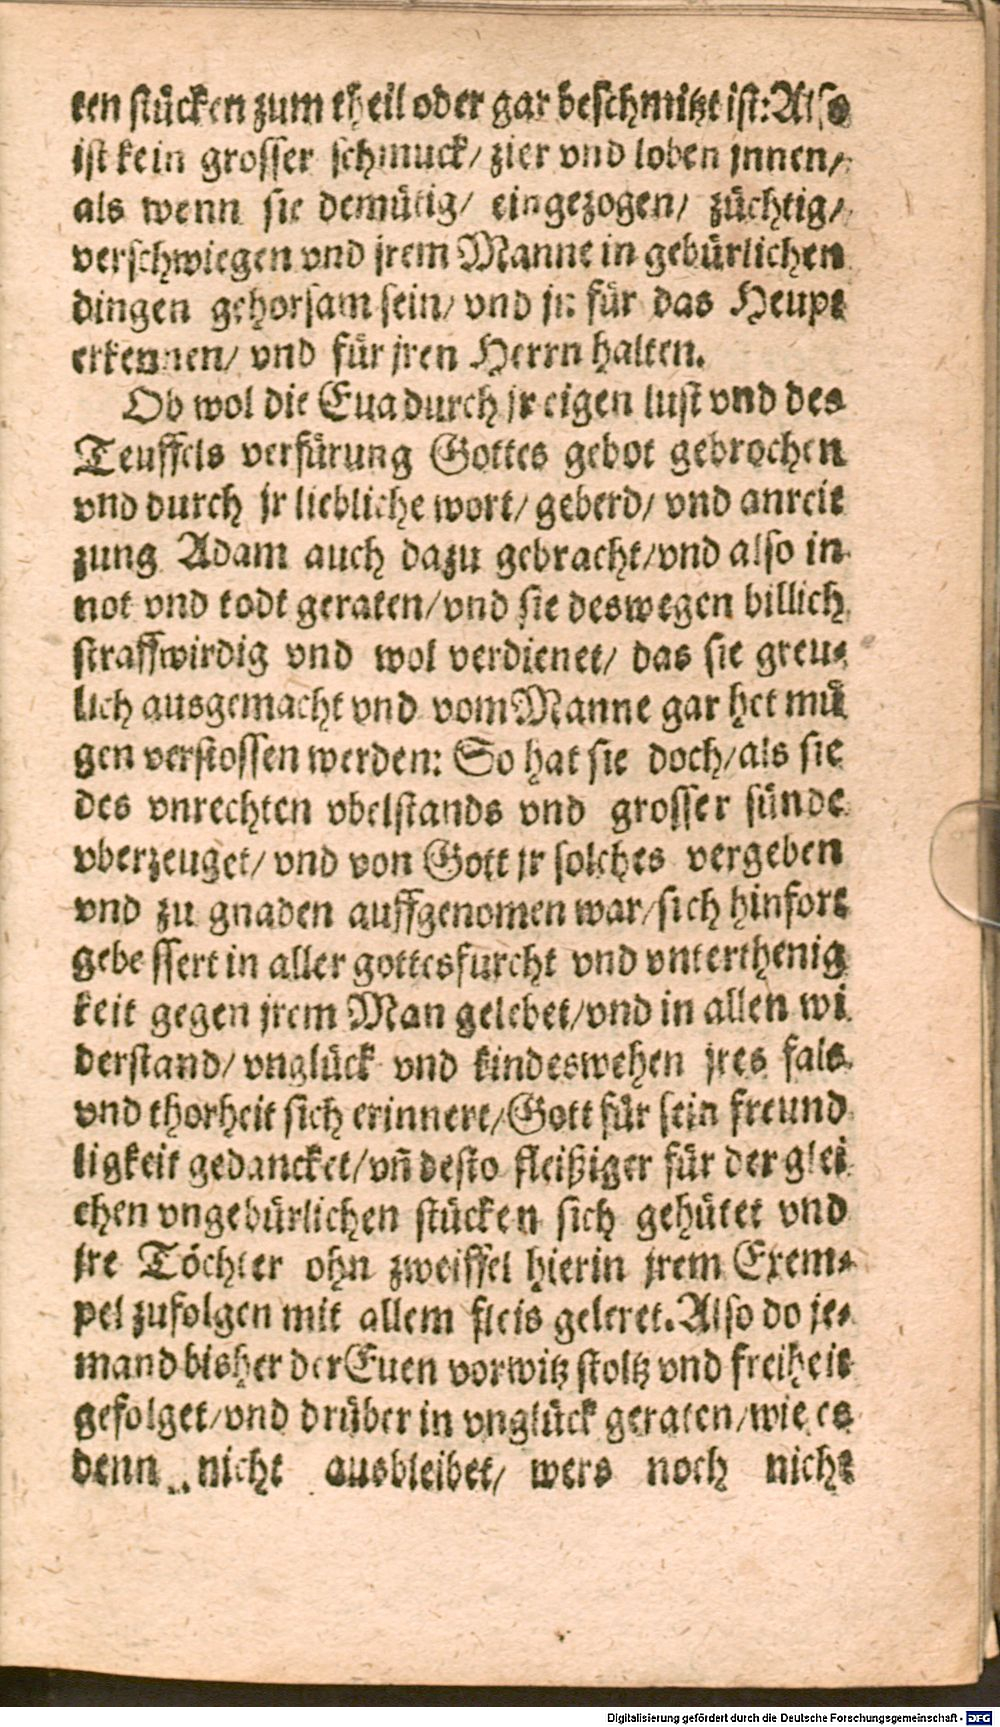 ten stücken zum theil oder gar beschmitzt ist: Also
ist kein grosser schmuck/ zier vnd loben jnnen/
als wenn sie demütig/ eingezogen/ züchtig/
verschwiegen vnd jrem Manne in gebürlichen
dingen gehorsam sein/ vnd jn für das Heupt
erkennen/ vnd für jren Herrn halten.
Ob wol die Eua durch jr eigen lust vnd des
Teuffels verfürung Gottes gebot gebrochen
vnd durch jr liebliche wort/ geberd/ vnd anreit
zung Adam auch dazu gebracht/ vnd also in
not vnd todt geraten/ vnd sie deswegen billich
straffwirdig vnd wol verdienet/ das sie greu-
lich ausgemacht vnd vom Manne gar het mü
gen verstossen werden: So hat sie doch/ als sie
des vnrechten vbelstands vnd grosser sünde
vberzeuget/ vnd von Gott jr solches vergeben
vnd zu gnaden auffgenomen war/ sich hinfort
gebessert in aller gottesfurcht vnd vnterthenig
keit gegen jrem Man gelebet/ vnd in allen wi
derstand/ vnglück vnd kindeswehen jres fals
vnd thorheit sich erinnert/ Gott für sein freund
ligkeit gedancket/ vñ desto fleißiger für der glei
chen vngebürlichen stücken sich gehütet vnd
jre Töchter ohn zweiffel hierin jrem Exem-
pel zufolgen mit allem fleis geleret. Also do je-
mand bisher der Euen vorwitz stoltz vnd freiheit
gefolget/ vnd drüber in vnglück geraten/ wie es
denn nicht ausbleibet/ wers noch nicht
Digitalisierung gefördert durch die Deutsche Forschungsgemeinschaft - DFG